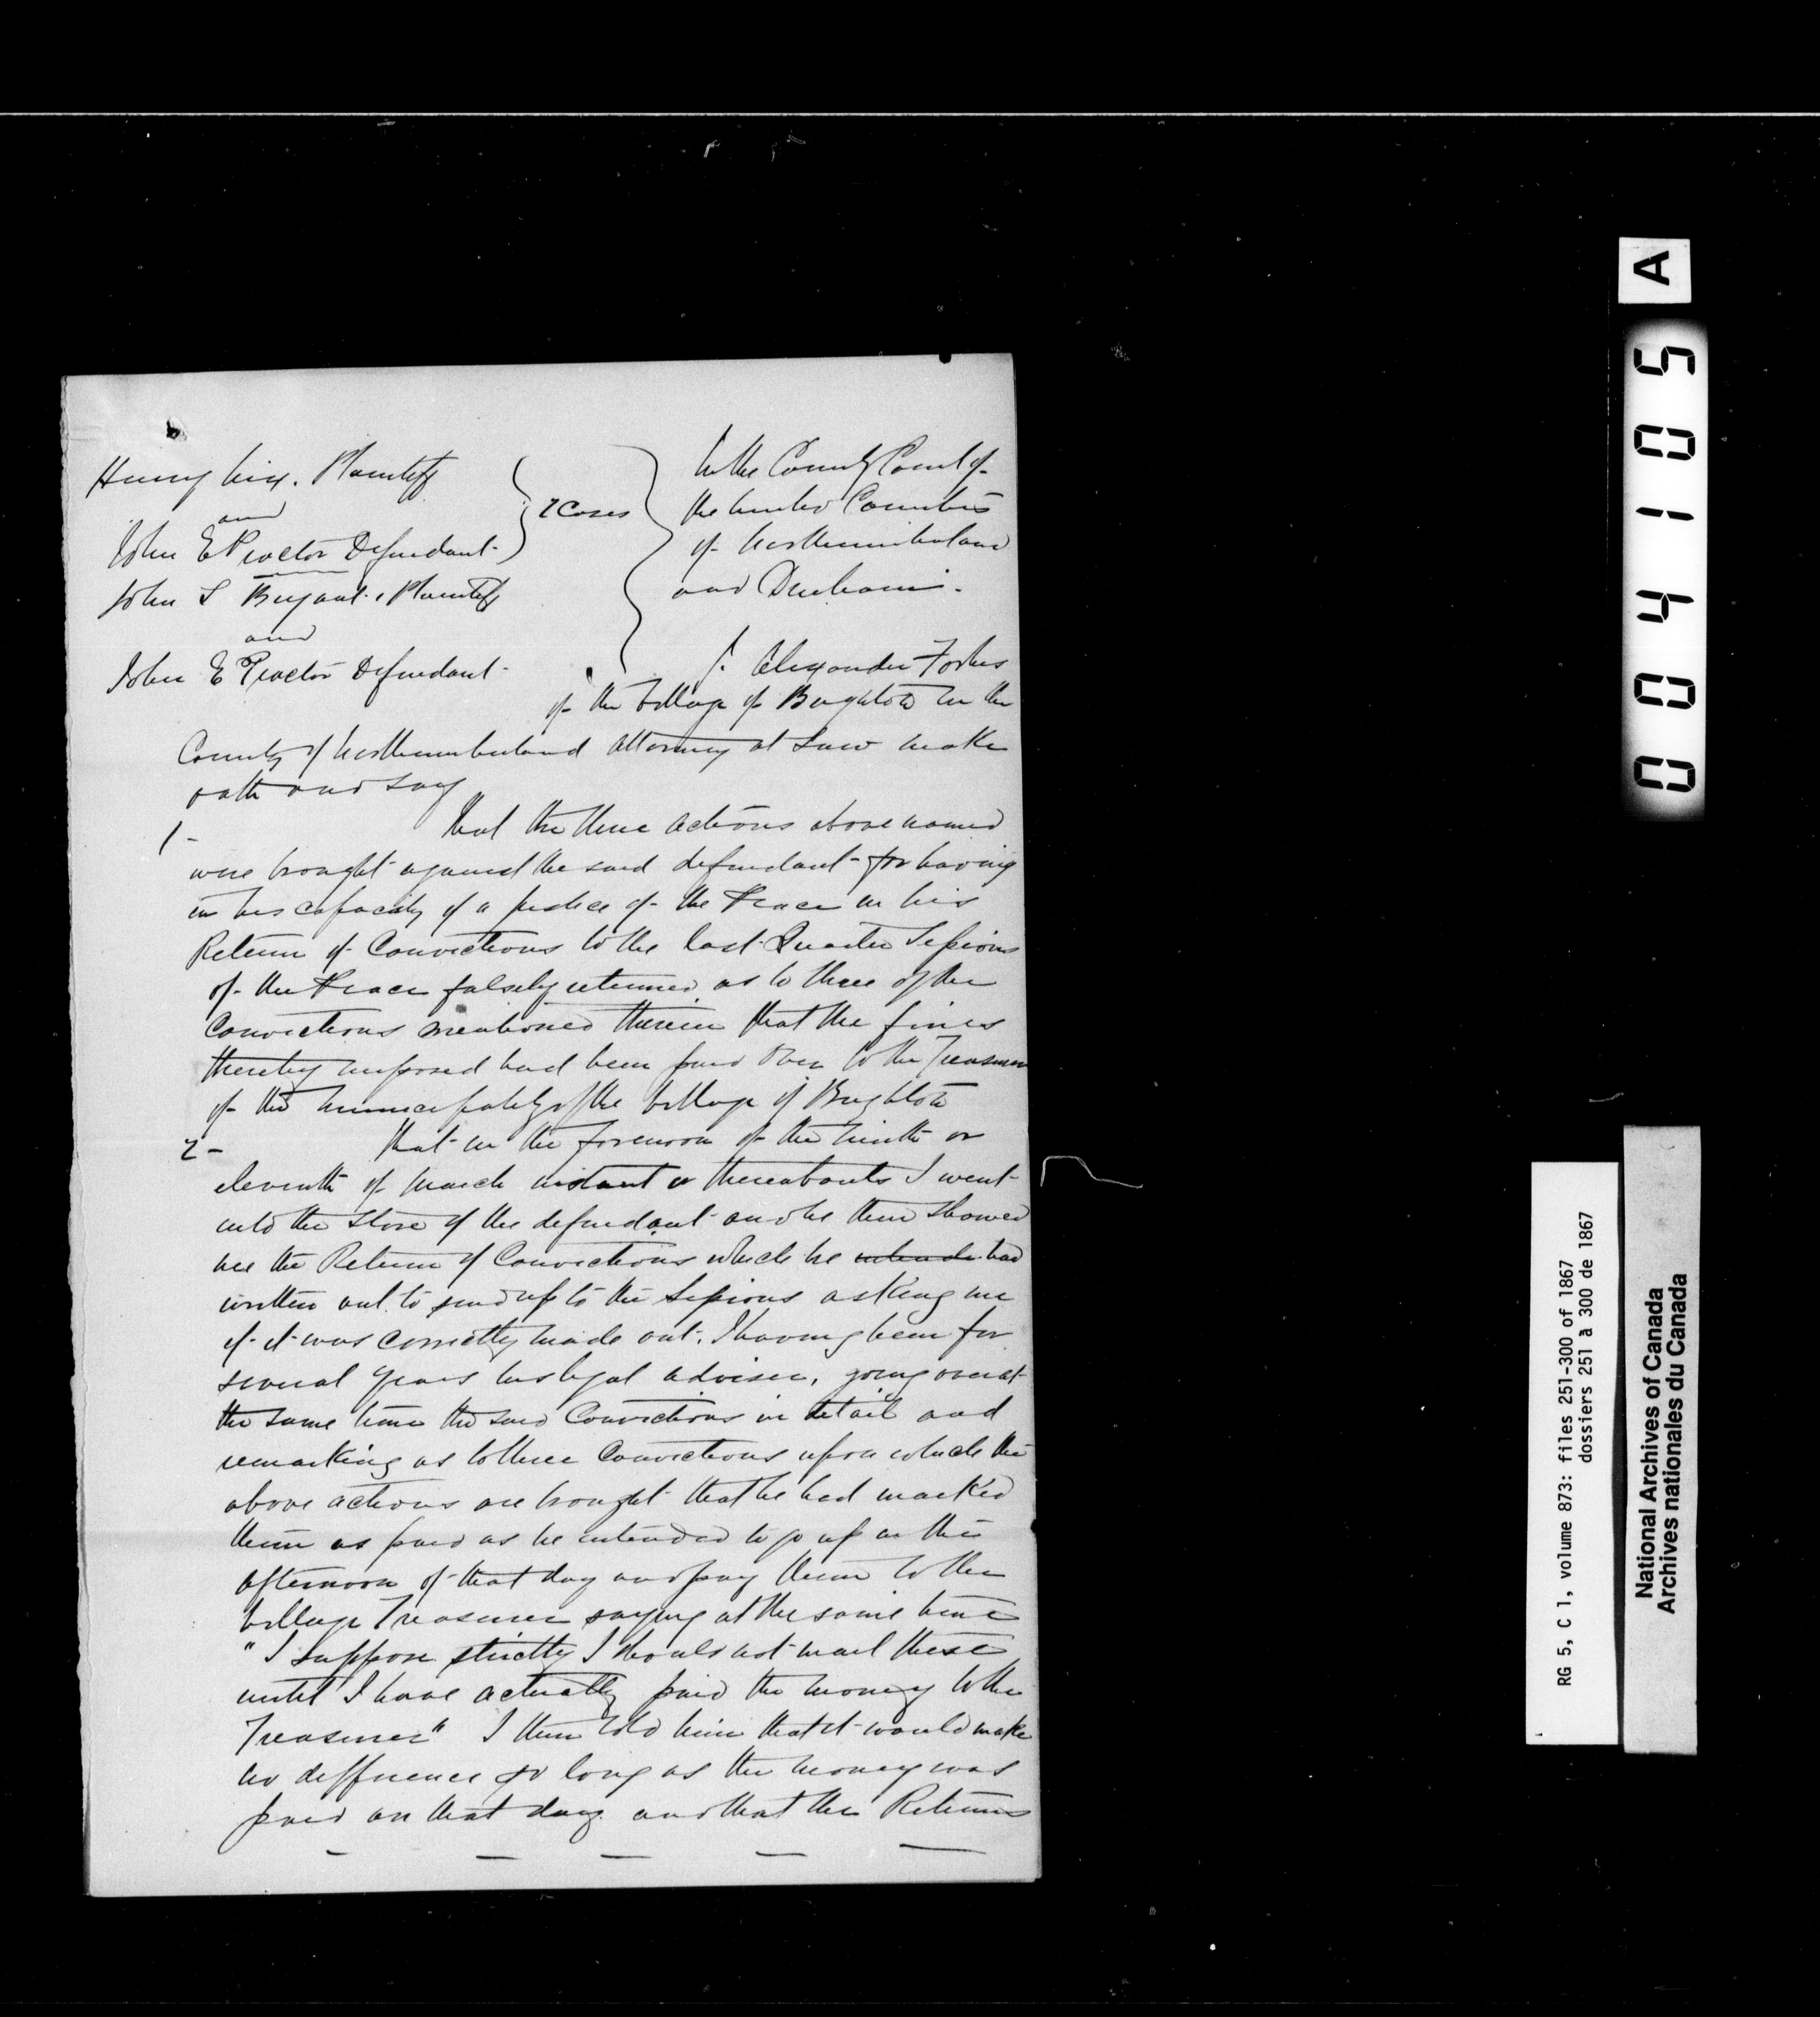 Henry Nix. Plaintiff
and
John E Proctor Defendant
2 Cases
John S Bryant. Plaintiff
and
John E Proctor Defendant
In the County Court of
the United Counties
of Northumberland
and Durham.
I. Alexander Forbes
of the Village of Brighton in the
County of Northumberland Attorney at Law make
oath and say
1- That the three actions above named
were brought against the said defendant for having
in his capacity of a Justice of the Peace in his
Return of Convictions to the last Quarter Sessions
of the Peace falsely returned as to three of the
Convictions mentioned therein that the fines
thereby imposed had been paid over to the Treasurer
of the municipality of the Village of Brighton
2- That in the forenoon of the ninth or
eleventh of March instant or thereabouts I went
into the store of the defendant and he then showed
me the Return of Convictions which he intends had
written out to send up to the Sessions asking me
if it was correctly made out, I having been for
several years his legal adviser, going over at
the same time the said Convictions in detail and
remarking as to three Convictions upon which the
above actions are brought that he had marked
them as paid as he intended to go up in the
afternoon of that day and pay them to the
Village Treasurer saying at the same time
"I suppose strictly I should not mail these
until I have actually paid the money to the
Treasurer" I then told him that it would make
no difference so long as the money was
paid on that day and that the Returns
A
004105
RG 5, C 1, volume 873: files 251-300 of 1867
dossiers 251 à 300 de 1867
National Archives of Canada
Archives nationales du Canada